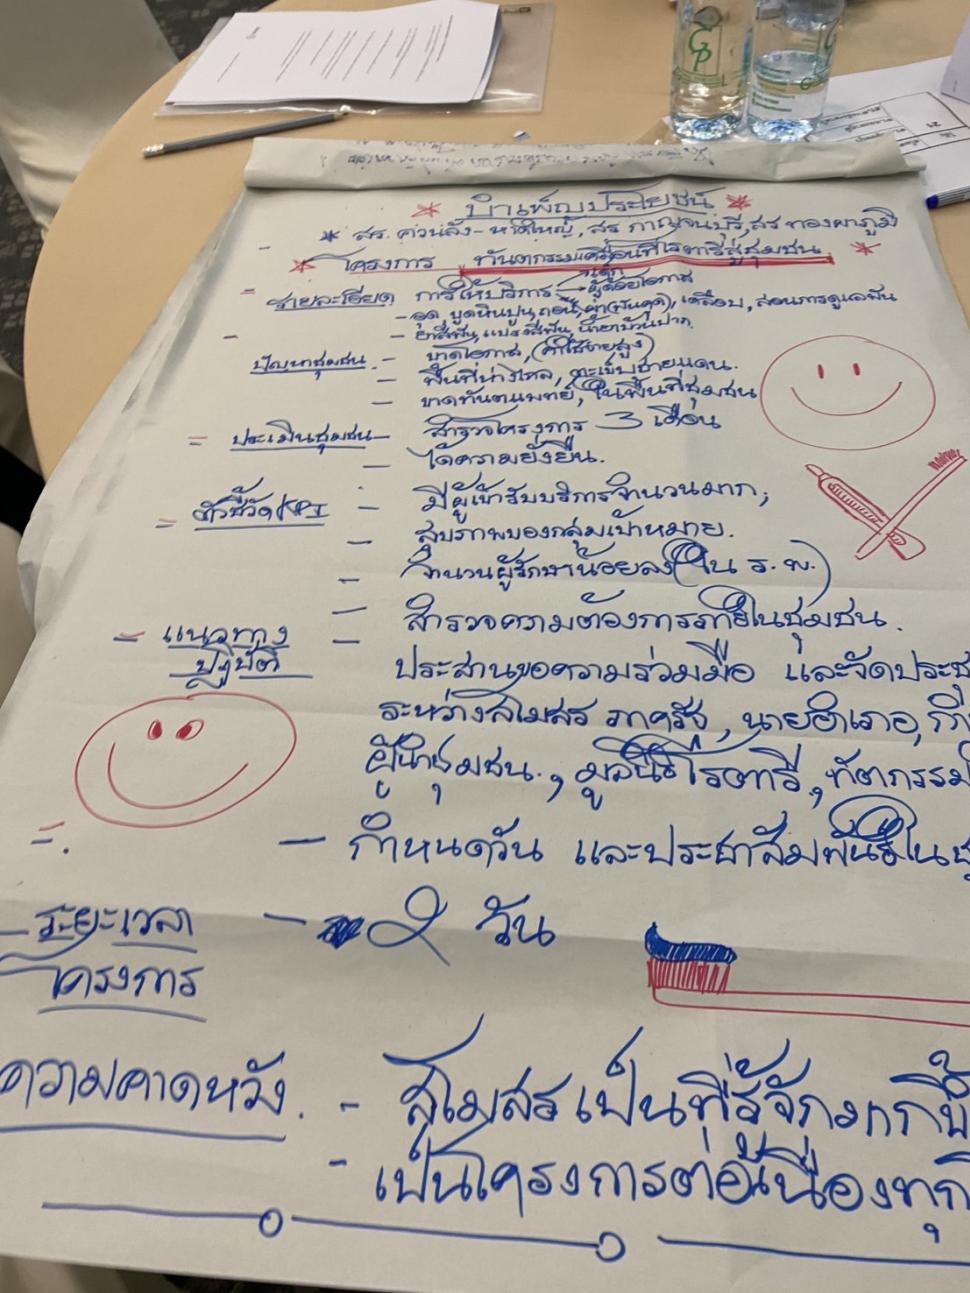 บำเพ็ญประโยชน์
* สร. ควนลัง-หาดใหญ่, สร กาญจนบุรี, สร ทองผาภูมิ
โครงการ ทันตกรรมเคลื่อนที่โรตารีสู่ชุมชน
= รายละเอียด การให้บริการ → เด็ก
ผู้ด้อยโอกาส
- อุด ขูดหินปูน, ถอน, ผ่า(ฟันคุด), เคลือบ, สอนการดูแลฟัน
- ยาสีฟัน, แปรงสีฟัน, น้ำยาบ้วนปาก
ปัญหาชุมชน - ขาดโอกาส, (ค่าใช้จ่ายสูง)
- พื้นที่ห่างไกล, ตะเข็บชายแดน.
- ขาดทันตแพทย์, ในพื้นที่ชุมชน
= ประเมินชุมชน - สำรวจโครงการ 3 เดือน
- ได้ความยั่งยืน.
= ตัวชี้วัด KPI - มีผู้เข้ารับบริการจำนวนมาก,
- สุขภาพของกลุ่มเป้าหมาย.
- จำนวนผู้รักษาน้อยลง (ใน ร.พ.)
- สำรวจความต้องการภายในชุมชน.
= แนวทาง
ปฏิบัติ
- ประสานขอความร่วมมือ และจัดประชุ
ระหว่างสโมสร ภาครัฐ, นายอำเภอ,
ผู้นำชุมชน., มูลนิธิโรตารี, ทัตกรรม
=. - กำหนดวัน และประชาสัมพันธ์ในชุ
- ระยะเวลา - 2 วัน
โครงการ
ความคาดหวัง. - สโมสรเป็นที่รู้จักมากขึ้
- เป็นโครงการต่อเนื่องทุก